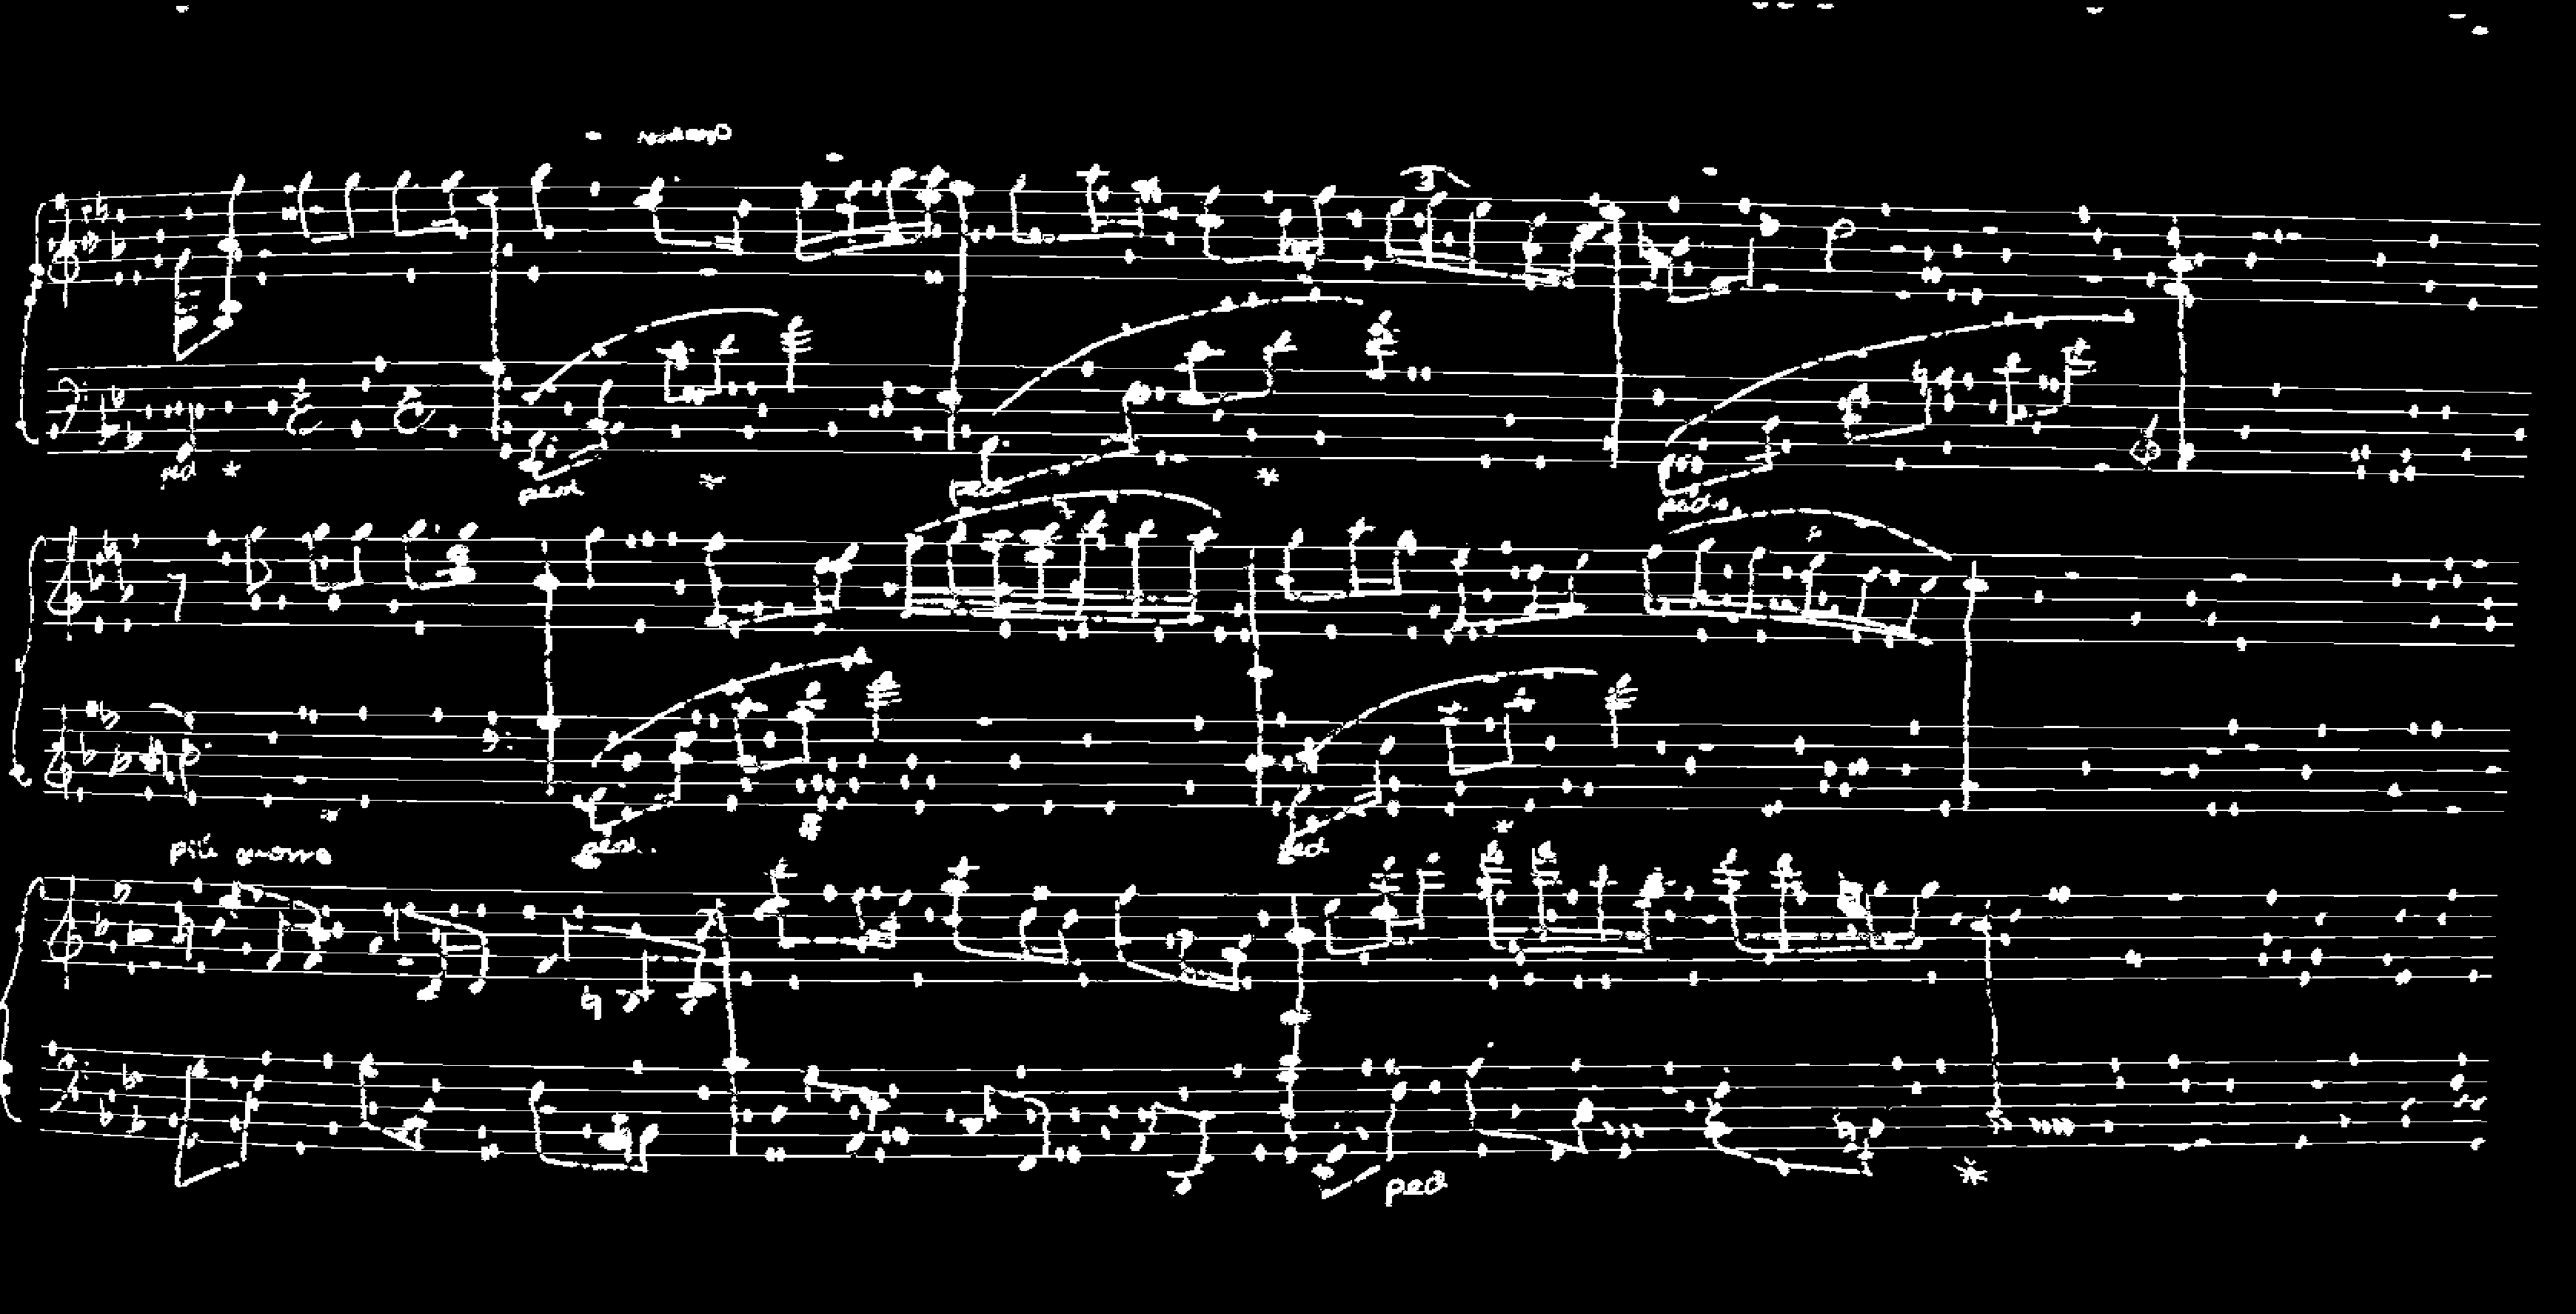 3
ped *
ped * ped * ped.
* ped. ped *
più
ped *